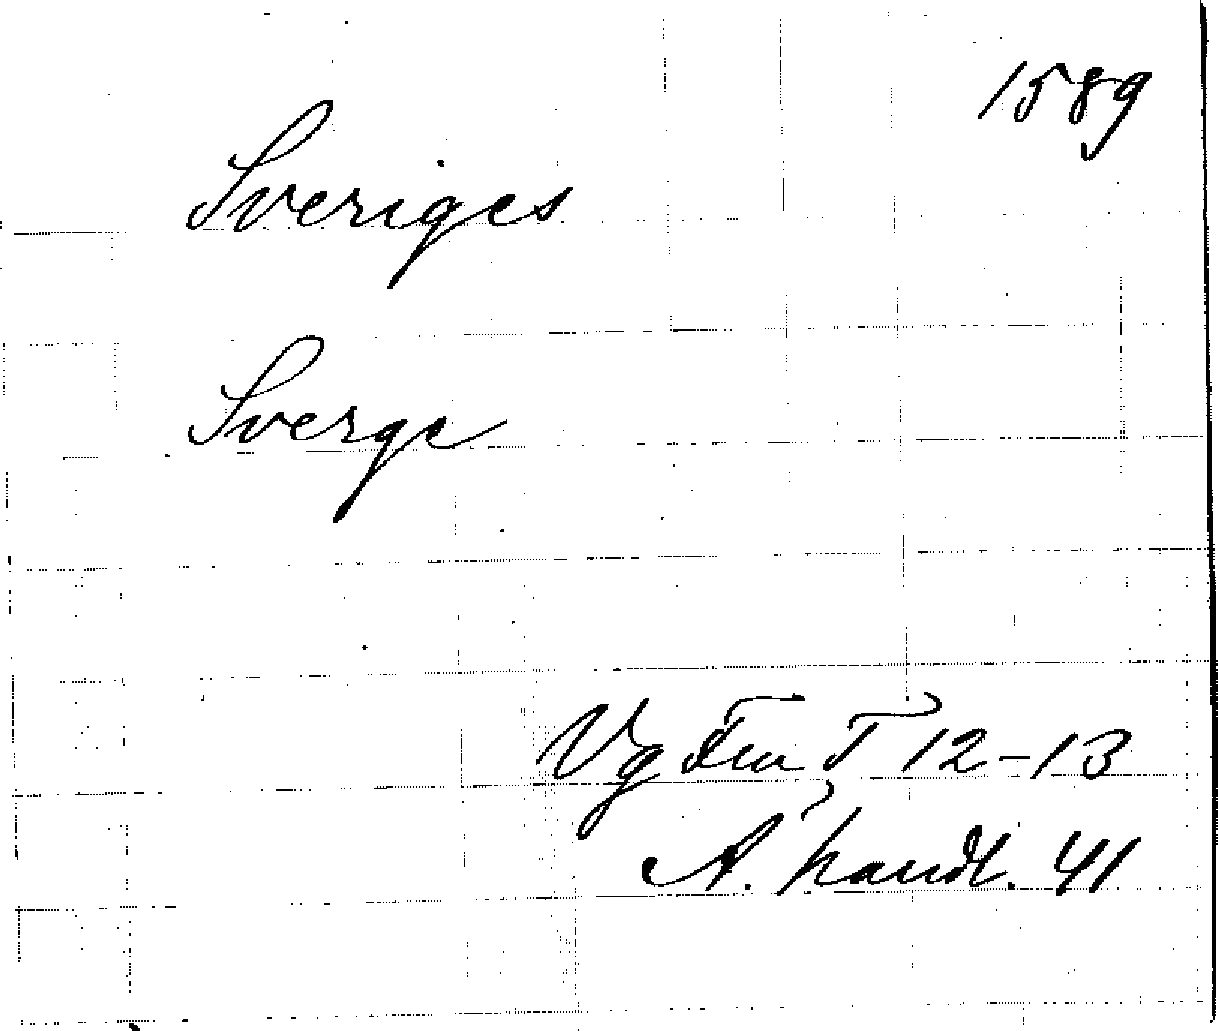 1589
Sveriges
Sverge
Vg Fru T 12-13
A. handl. 41